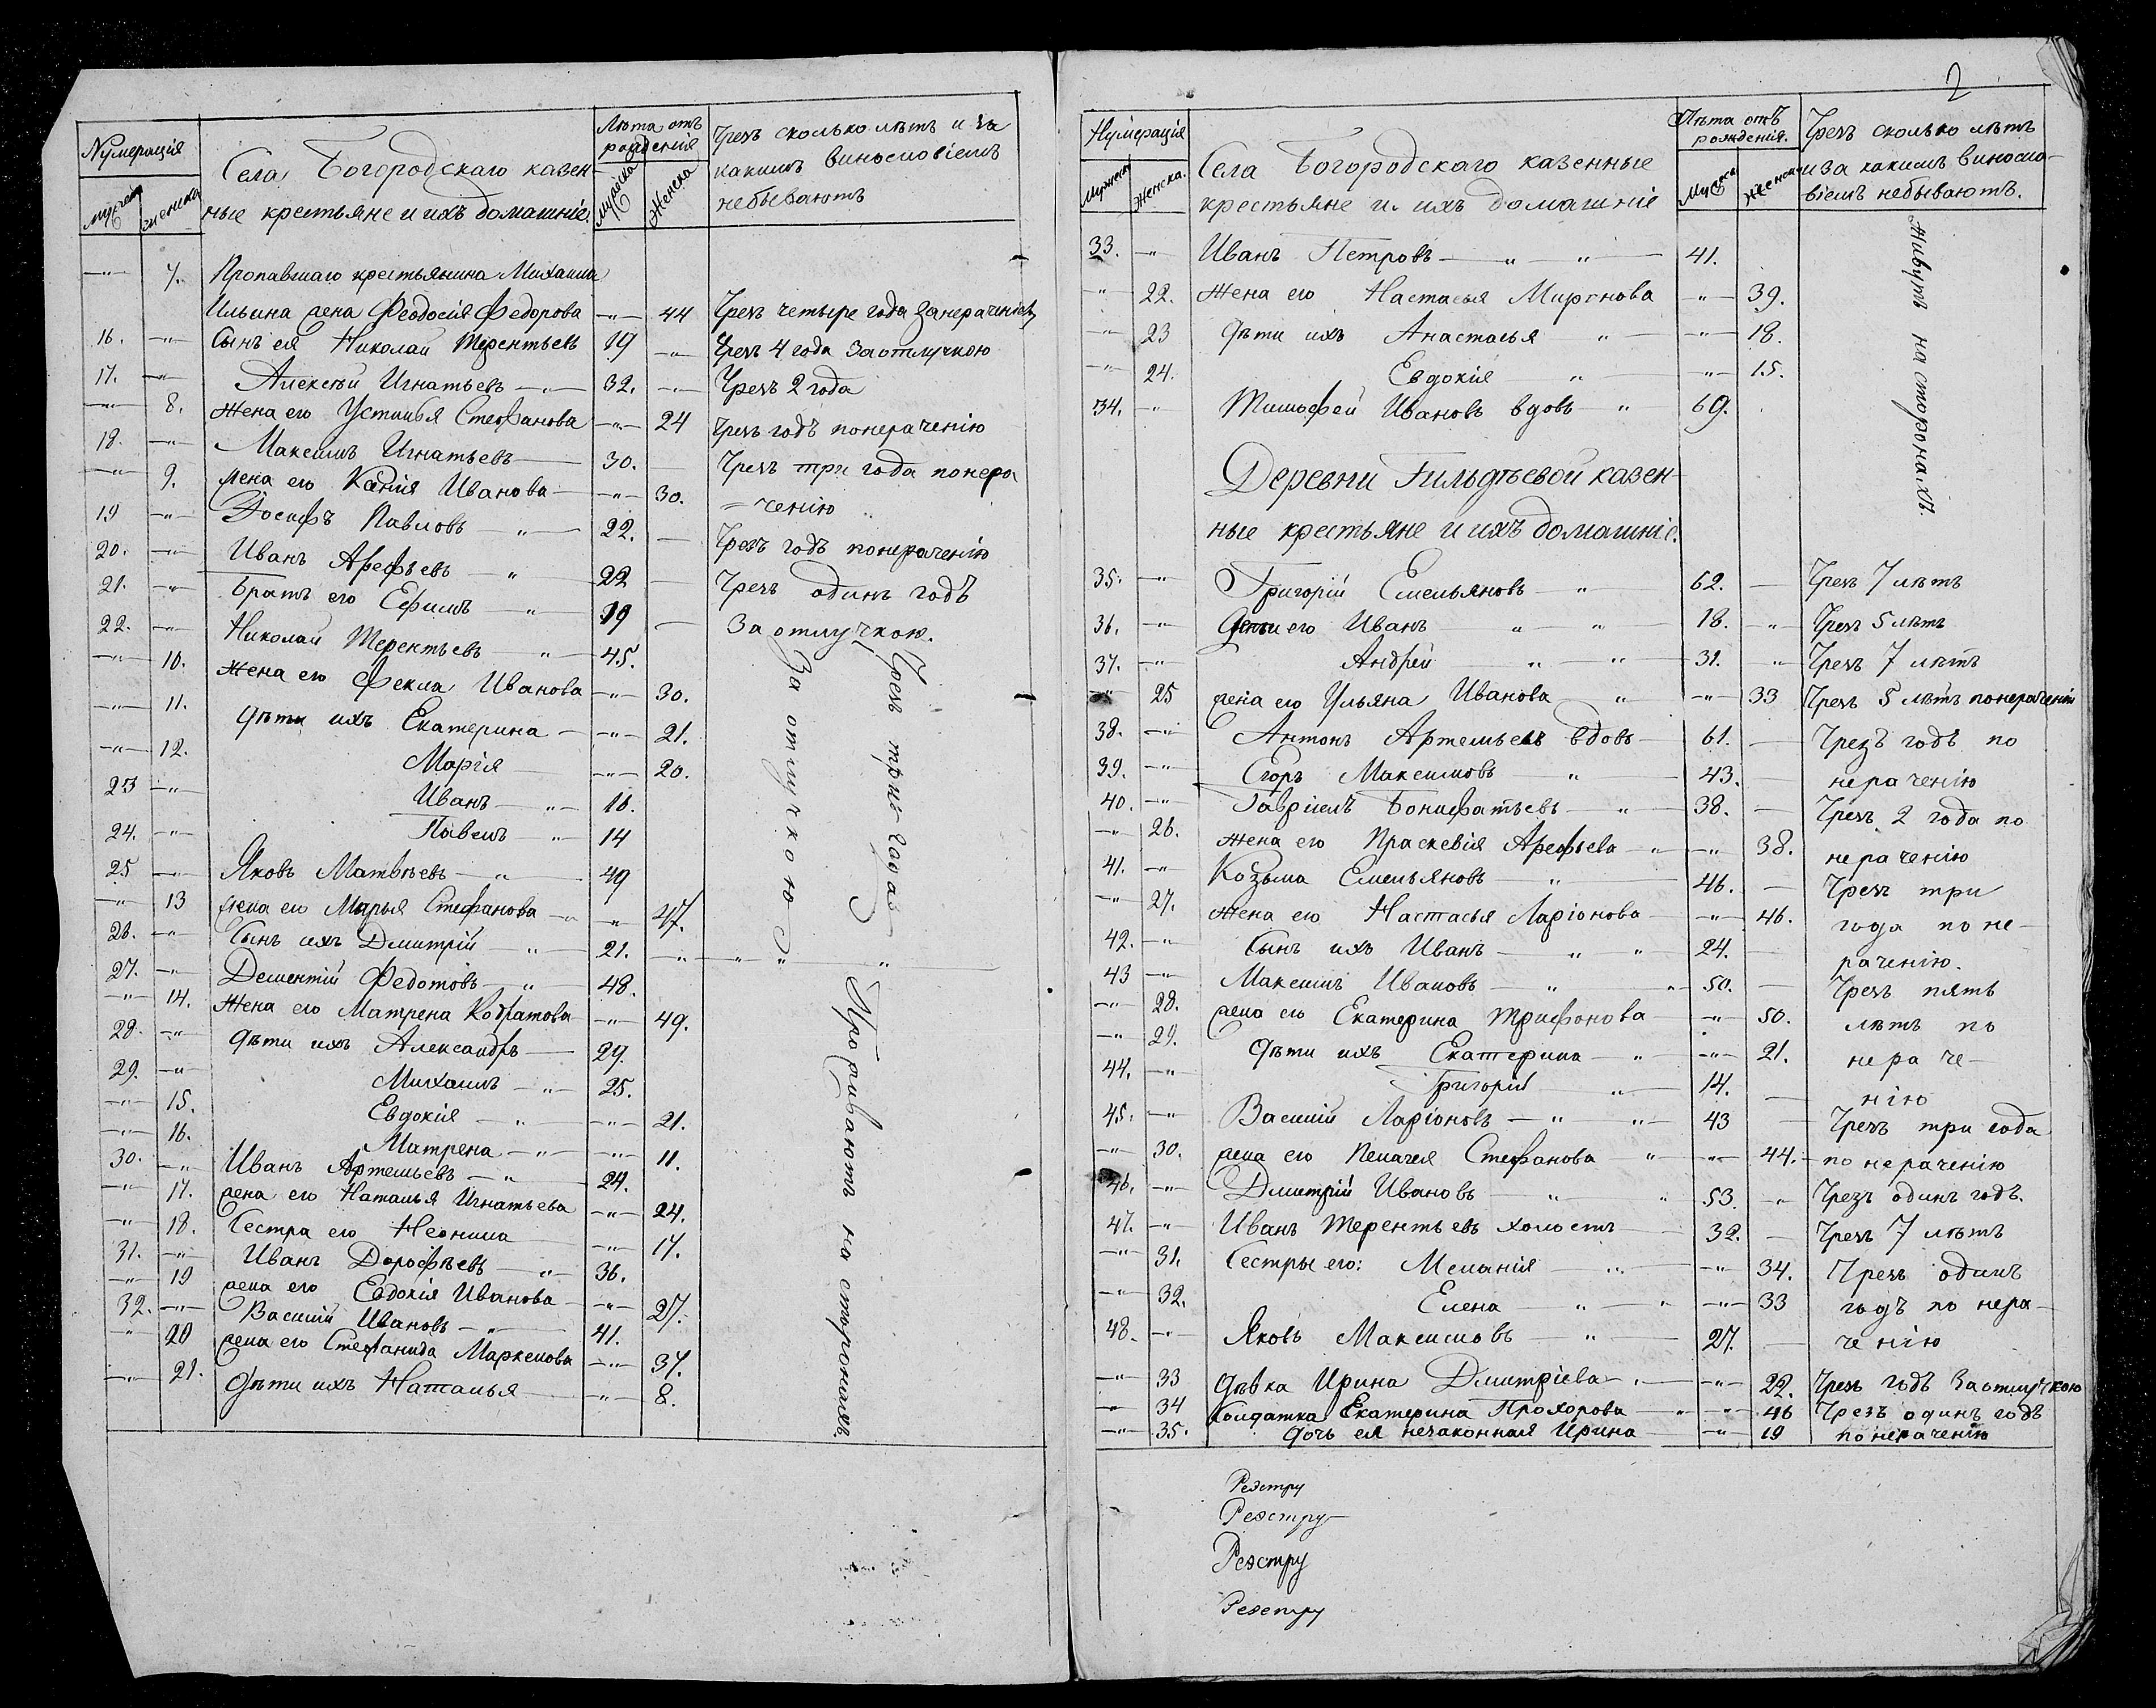 Нумерація
мужеска
женска
Села Богородскаго казен-
ные крестьяне и ихъ домашніе
Лѣта отъ
рожденія
мужска
Женска
Чрезъ сколько лѣтъ и за
какимъ винословіемъ
небываютъ
—„— 7. Пропавшаго крестьянина Михаила
Ильина жена Феодосія Федорова —„— 44 Чрезъ четыре года занераченіемъ
16. —„— Сынъ ея Николай Терентьевъ 19 —„— Чрезъ 4 года За отлучкою
17. —„— Алексѣй Игнатьевъ —„— 32. —„— Чрезъ 2 года
—„— 8. Жена его Устинья Стефанова —„— 24 Чрезъ годъ понераченію
18. —„— Максимъ Игнатьевъ — 30. Чрезъ три года понера
—„— 9. жена его Ксенія Иванова —„— 30. = ченію
19 —„— Іосифъ Павловъ —„— 22. — Чрезъ годъ понераченію
20. —„— Иванъ Арефьевъ —„— 22 — Чрезъ одинъ годъ
21. —„— Братъ его Ефимъ —„— 19 — За отлучкою.
22. —„— Николай Терентьевъ —„— 45.
—„— 10. Жена его Фекла Иванова —„— 30.
—„— 11. Дѣти ихъ Екатерина —„— 21.
—„— 12. Марія —„— 20.
23 —„— Иванъ —„— 16.
24. —„— Павелъ —„— 14
25 —„— Яковъ Матвѣевъ —„— 49
—„— 13 жена его Марья Стефанова —„— 47.
26. —„— Сынъ ихъ Дмитрій —„— 21. —„—„—„—
Чрезъ три года
За отлучкою
27. —„— Дементій Федотовъ —„— 48.
—„— 14. Жена его Матрена Кодратова —„— 49.
28. —„— Дѣти ихъ Александръ — 29.
29. —„— Михаилъ —„— 25.
—„— 15. Евдокія —„— —„— 21.
—„— 16. Матрена —„— —„— 11.
30. —„— Иванъ Артемьевъ —„— 24.
—„— 17. жена его Наталья Игнатьева —„— 24.
—„— 18. Сестра его Неонила —„— 17.
31. —„— Иванъ Дорофѣевъ —„— 36.
—„— 19 жена его Евдокія Иванова —„— 27.
32. —„— Василій Ивановъ —„— 41.
—„— 20 жена его Стефанида Маркелова —„— 37.
—„— 21. Дѣти ихъ Наталья —„— 8.
Проживаютъ на сторонахъ.
2
Нумерація
Мужеск
Женска.
Села Богородскаго казенные
крестьяне и ихъ домашніе
Лѣта отъ
рожденія.
Мужска
женска
Чрезъ сколько лѣтъ
и за какимъ виносло-
віемъ небываютъ.
33. —„— Иванъ Петровъ —„—„— 41.
—„— 22. Жена его Настасья Миронова —„— 39.
—„— 23 Дѣти ихъ Анастасья —„— 18.
—„— 24. Евдокія —„— —„— 15.
34. —„— Тимофей Ивановъ вдовъ —„— 69.
Живутъ на сторонахъ.
Деревни Гильдѣевой казен-
ные крестьяне и ихъ домашніе.
35. —„— Григорій Емельяновъ —„— 62. — Чрезъ 7 лѣтъ
36. —„— Дѣти его Иванъ „ „ 18. —„— Чрезъ 5 лѣтъ
37. —„— Андрей —„—„— 31. —„— Чрезъ 7 лѣтъ
—„— 25 жена его Ульяна Иванова —„— 33 Чрезъ 5 лѣтъ понераченію
38. —„— Антонъ Артемьевъ вдовъ — 61. — Чрезъ годъ по
39. —„— Егоръ Максимовъ „ 43. — нераченію
40. —„— Гавріилъ Бонифатьевъ —„— 38. — Чрезъ 2 года по
—„— 26. Жена его Праскевія Арефьева —„— 38. нераченію
41. —„— Козьма Емельяновъ —„— 46. — Чрезъ три
—„— 27. Жена его Настасья Ларіонова —„— 46. года по не-
42. —„— Сынъ ихъ Иванъ —„—„— 24. — раченію.
43 —„— Максимъ Ивановъ —„—„— 50. — Чрезъ пять
—„— 28. жена его Екатерина Трифонова —„— 50. лѣтъ по
—„— 29. Дѣти ихъ Екатерина —„— —„— 21. нераче-
44. —„— Григорій —„— 14. — нію
45. —„— Василій Ларіоновъ —„—„— 43 — Чрезъ три года
—„— 30. жена его Пелагея Стефанова „ —„— 44. по нераченію
46. —„— Дмитрій Ивановъ —„— 53. —„— Чрезъ одинъ годъ.
47. —„— Иванъ Терентьевъ холостъ — 32. — Чрезъ 7 лѣтъ
—„— 31. Сестры его: Меланія —„— —„— 34. Чрезъ одинъ
—„— 32. Елена —„—„— —„— 33 годъ по нера-
48. —„— Яковъ Максимовъ —„— 27. — ченію
—„— 33 Дѣвка Ирина Дмитріева —„— 22. Чрезъ годъ За отлучкою
—„— 34 Солдатка Екатерина Прохорова —„— 46 Чрезъ одинъ годъ
—„— 35. Дочь ея незаконная Ирина —„— 19 по нераченію
Реэстру
Реэстру
Реэстру
Реэстру